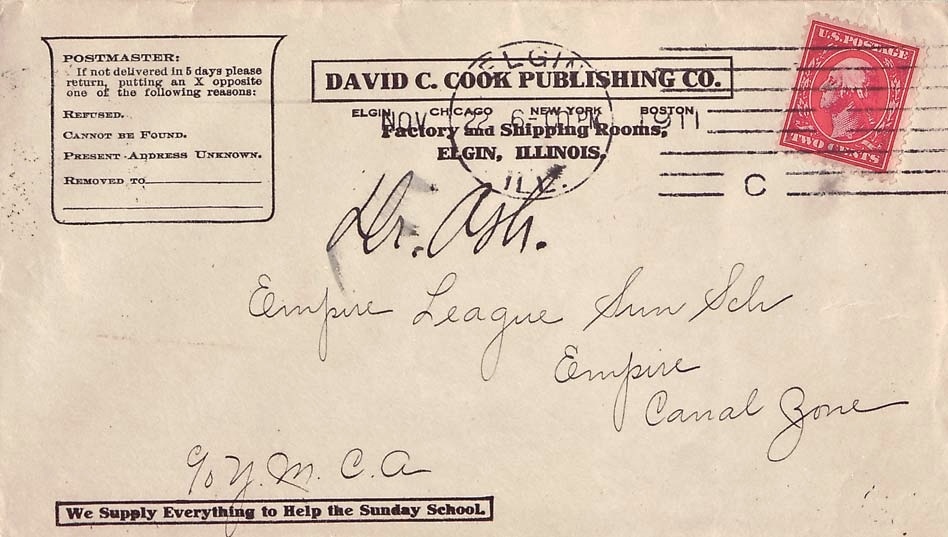 POSTMASTER:
If not delivered in 5 days please
return, putting an X opposite
one of the following reasons:
REFUSED.
CANNOT BE FOUND.
PRESENT ADDRESS UNKNOWN.
REMOVED TO
DAVID C. COOK PUBLISHING CO.
ELGIN CHICAGO NEW YORK BOSTON
Factory and Shipping Rooms,
ELGIN, ILLINOIS.
ELGIN
NOV 22 6-00 PM 1911
ILL.
C
U.S. POSTAGE
TWO CENTS
Dr. Ash.
Empire League Sun Sch
Empire
Canal Zone
c/o Y. M. C. A
We Supply Everything to Help the Sunday School.